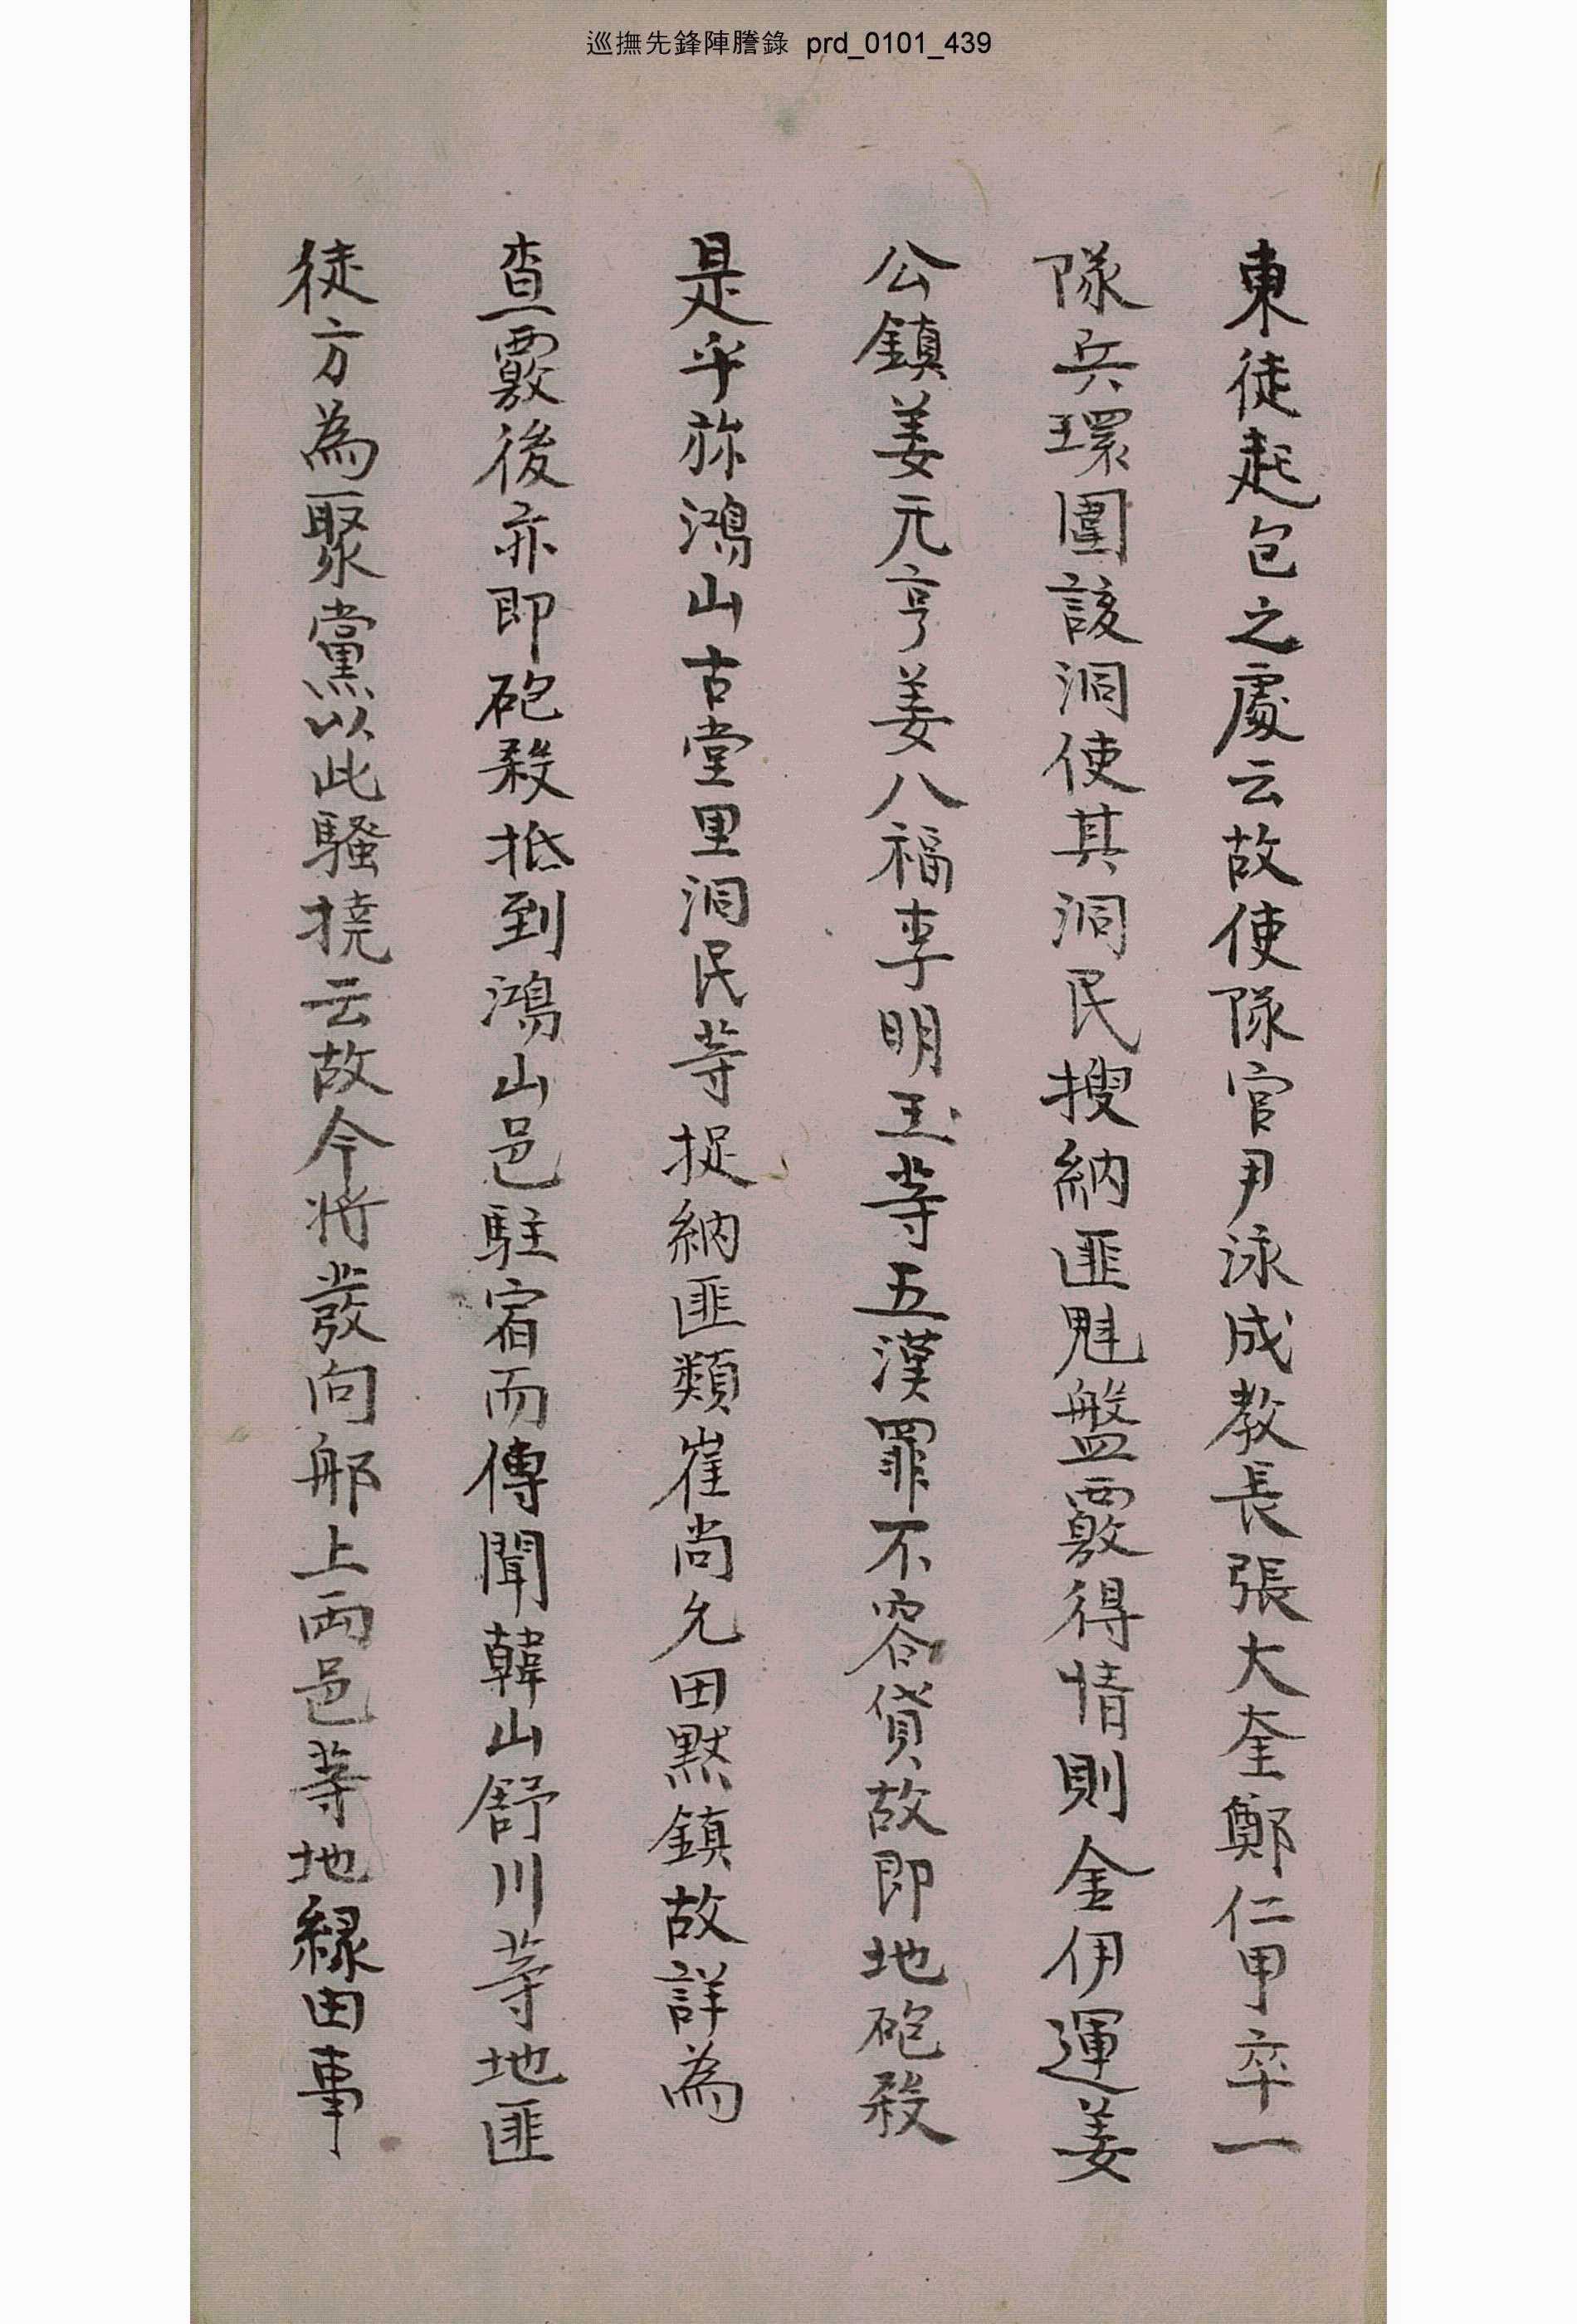 巡撫先鋒陣謄錄 prd_0101_439
東徒起包之處云故使隊官尹泳成教長張大奎鄭仁甲卒一
隊兵環圍該洞使其洞民搜納匪魁盤覈得情則金伊運姜
公鎮姜元亨姜八福李明玉等五漢罪不容貸故即地砲殺
是乎旀鴻山古堂里洞民等捉納匪類崔尚允田黙鎮故詳為
查覈後亦即砲殺抵到鴻山邑駐宿而傳聞韓山舒川等地匪
徒方為聚黨以此騷撓云故今將發向邴上兩邑等地緣由事